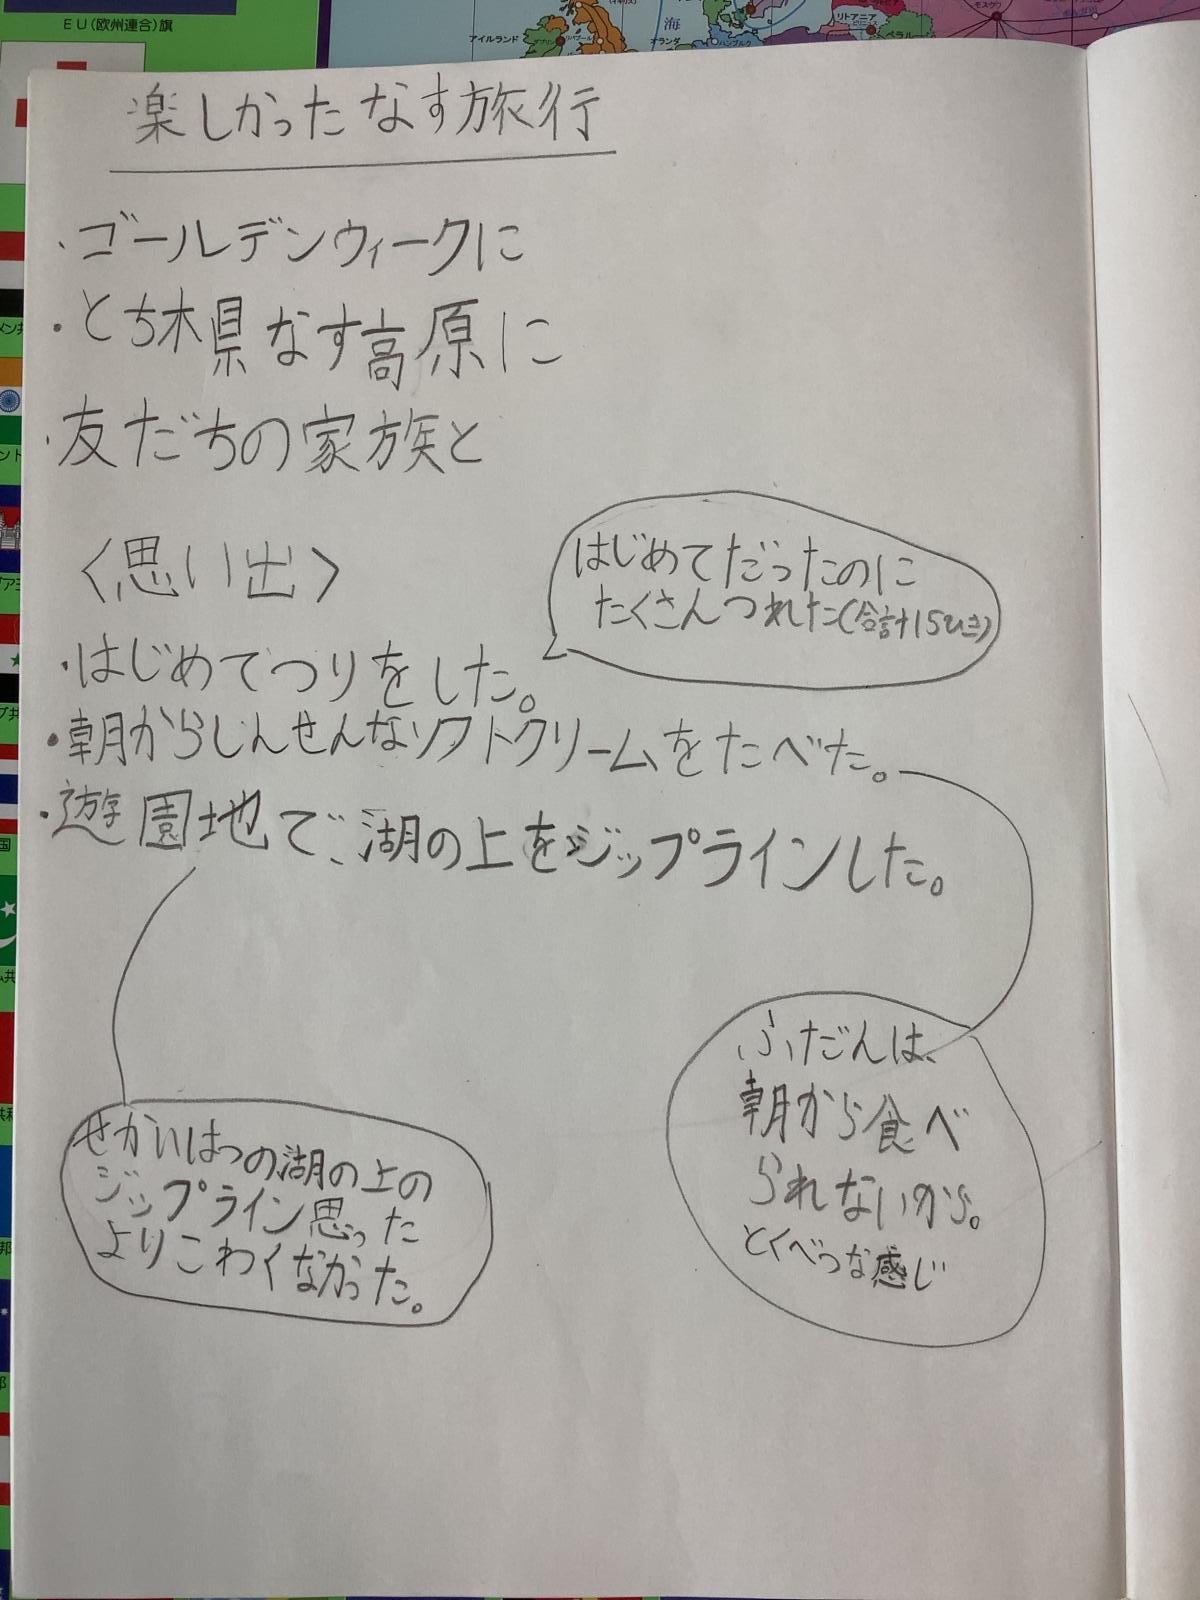 EU(欧州連合)旗
アイルランド
オランダ
海
リトアニア
モスクワ
ベラルー
楽しかったなす旅行
・ゴールデンウィークに
・とち木県なす高原に
・友だちの家族と
〈思い出〉
はじめてだったのに
たくさんつれた(合計15ひき)
・はじめてつりをした。
・朝からしんせんなソフトクリームをたべた。
・遊園地で、湖の上をジップラインした。
ふだんは、
朝から食べ
られないから。
とくべつな感じ
せかいはつの湖の上の
ジップライン思った
よりこわくなかった。